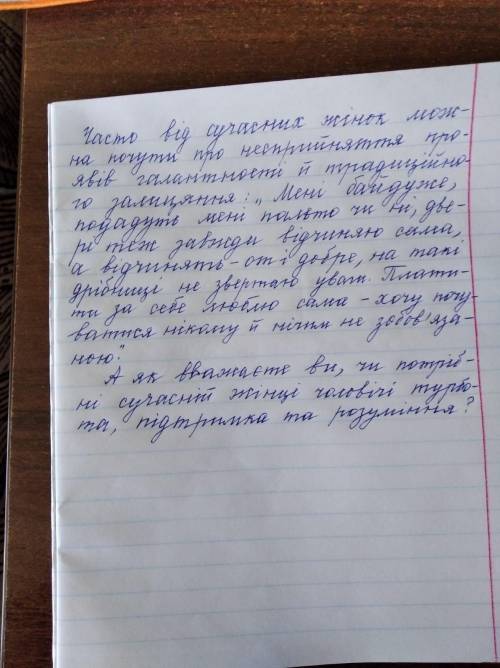 Часто від сучасних жінок мож-
на почути про неоприйняття про-
явів галантності й традиційно-
го залицяння: „Мені байдуже,
подадуть мені пальто чи ні, две-
рі теж завжди відчиняю сама,
а відчинять - от і добре, на такі
дрібниці не звертаю уваги. Плати-
ти за себе люблю сама - хочу почу-
ватися нікому й нічим не зобов'яза-
ною."
А як вважаєте ви, чи потріб-
ні сучасній жінці чоловічі турбо-
та, підтримка та розуміння?